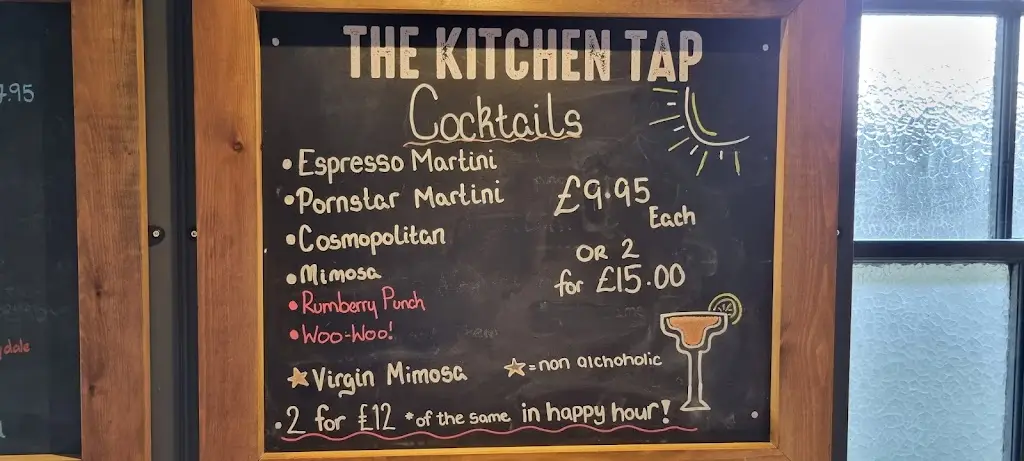 7.95
THE KITCHEN TAP
Cocktails
• Espresso Martini
• Pornstar Martini
• Cosmopolitan
• Mimosa
• Rumberry Punch
• Woo-Woo!
£9.95
Each
OR 2
for £15.00
☆ Virgin Mimosa
☆ = non alchoholic
• 2 for £12 *of the same in happy hour!